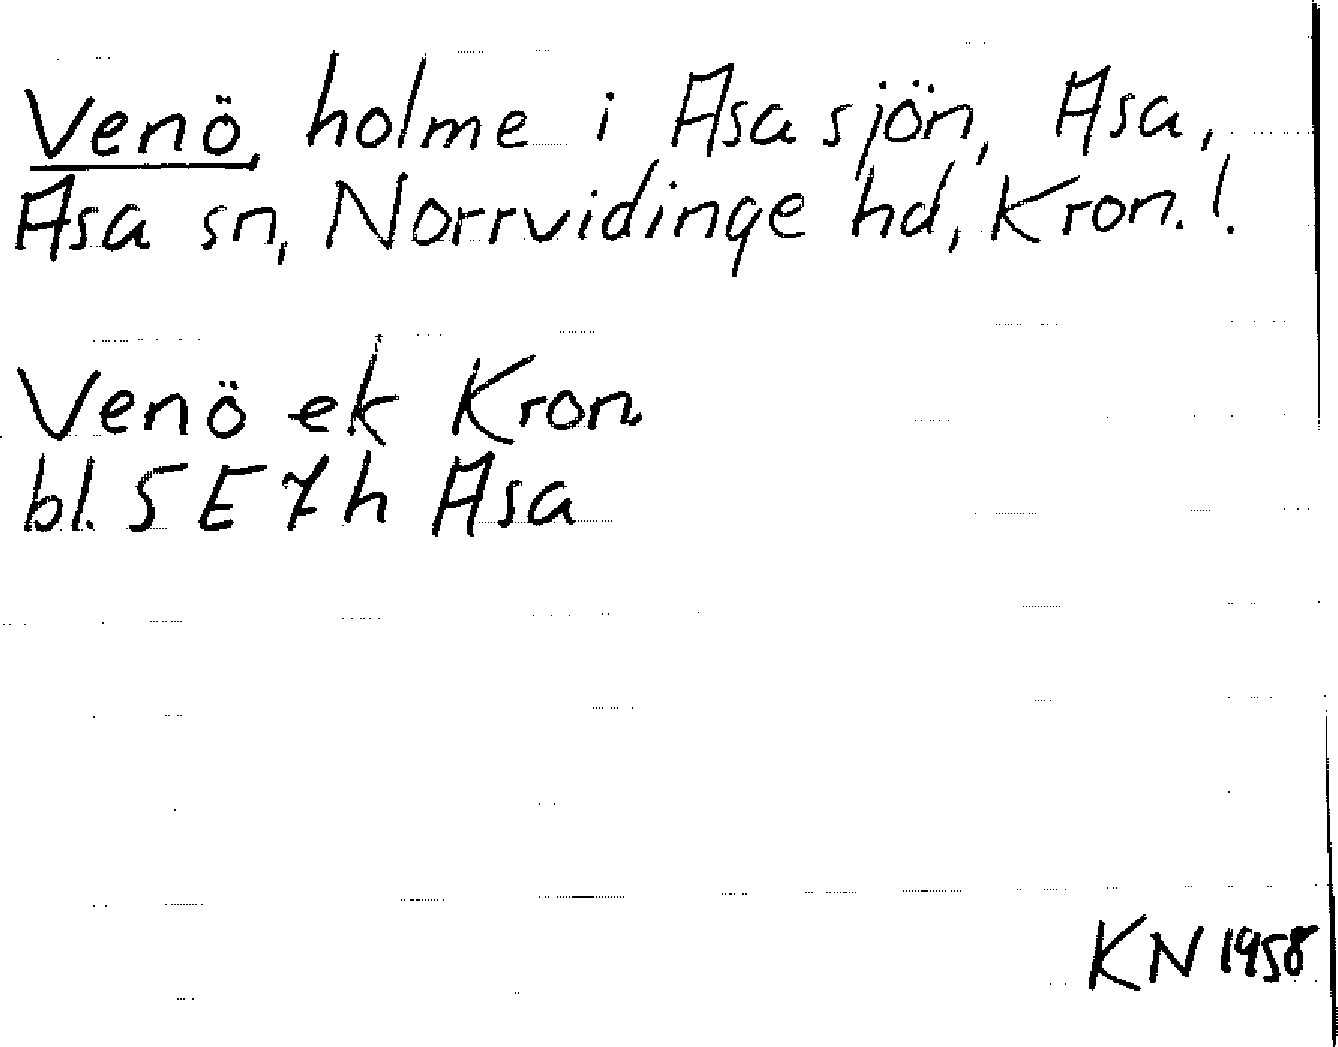 Venö, holme i Asasjön, Asa,
Asa sn, Norrvidinge hd, Kron.!
Venö ek Kron
bl. 5E7h Asa
KN 1958